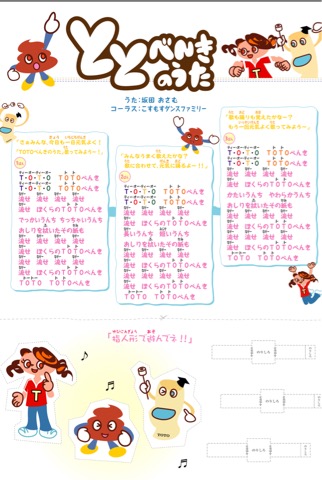 ととべんきのうた
うた：坂田 おさむ
コーラス：こすもすダンスファミリー
T・O・T・O TOTOべんき
T・O・T・O TOTOべんき
流せ 流せ 流せ 流せ
流せ ぼくらのTOTOべんき
でっかいうんち ちっちゃいうんち
おしりを拭いたその紙も
流せ 流せ 流せ 流せ
流せ 流せ 流せ 流せ
流せ ぼくらのTOTOべんき
T・O・T・O TOTOべんき
T・O・T・O TOTOべんき
流せ 流せ 流せ 流せ
流せ ぼくらのTOTOべんき
長いうんち 短いうんち
おしりを拭いたその紙も
流せ 流せ 流せ 流せ
流せ 流せ 流せ 流せ
流せ ぼくらのTOTOべんき
TOTO TOTOべんき
T・O・T・O TOTOべんき
T・O・T・O TOTOべんき
流せ 流せ 流せ 流せ
流せ ぼくらのTOTOべんき
かたいうんち やわらかうんち
おしりを拭いたその紙も
流せ 流せ 流せ 流せ
流せ 流せ 流せ 流せ
流せ ぼくらのTOTOべんき
TOTO TOTOべんき
「指人形で遊んでネ!!」
T
TOTO
のりしろ
のりしろ
のりしろ